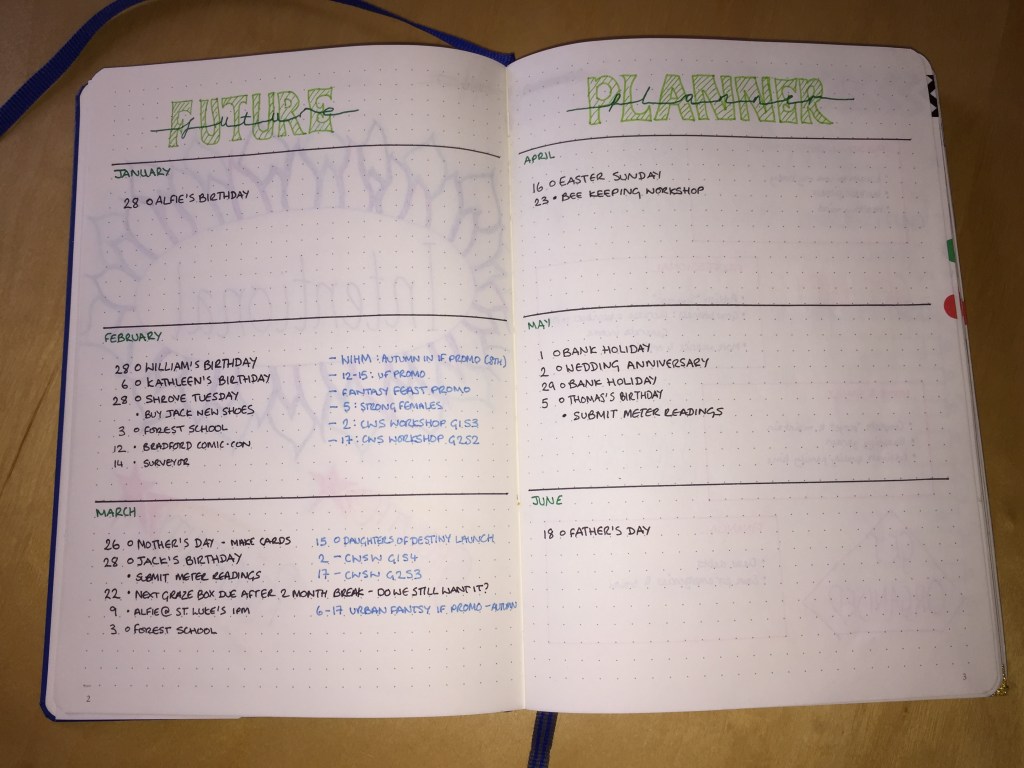 FUTURE
future
JANUARY
28 o ALFIE'S BIRTHDAY
FEBRUARY
28 o WILLIAM'S BIRTHDAY
6 o KATHLEEN'S BIRTHDAY
28 o SHROVE TUESDAY
• BUY JACK NEW SHOES
3 o FOREST SCHOOL
12 • BRADFORD COMIC-CON
14 • SURVEYOR
– WIHM: AUTUMN IN IF PROMO (8TH)
– 12-15: UF PROMO
– FANTASY FEAST PROMO
– 5: STRONG FEMALES
– 2: CWS WORKSHOP G1S3
– 17: CWS WORKSHOP G2S2
MARCH
26 o MOTHER'S DAY - MAKE CARDS
28 o JACK'S BIRTHDAY
• SUBMIT METER READINGS
22 • NEXT GRAZE BOX DUE AFTER 2 MONTH BREAK - DO WE STILL WANT IT?
9 • ALFIE @ ST. LUKE'S 1PM
3 o FOREST SCHOOL
15 o DAUGHTERS OF DESTINY LAUNCH
2 – CWSW G1S4
17 – CWSW G2S3
6-17 URBAN FANTSY IF PROMO - AUTUMN
2
PLANNER
planner
APRIL
16 o EASTER SUNDAY
23 • BEE KEEPING WORKSHOP
MAY
1 o BANK HOLIDAY
2 o WEDDING ANNIVERSARY
29 o BANK HOLIDAY
5 o THOMAS'S BIRTHDAY
• SUBMIT METER READINGS
JUNE
18 o FATHER'S DAY
3
Intentional